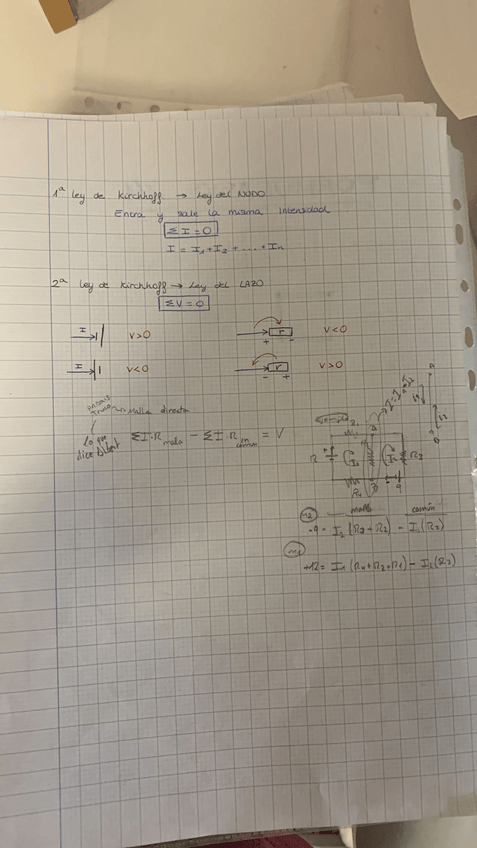 1ª Ley de Kirchhoff → Ley del NUDO
Entra y sale la misma intensidad
ΣI = 0
I = I₁ + I₂ + .... + Iₙ
2ª Ley de Kirchhoff → Ley del LAZO
ΣV = 0
I V>0 r + - V<0
I V<0 r - + V>0
Malla directa
Lo que
ΣI·R malla - ΣI·R común = V
malla común
-9 = I₂(R₃+R₂) - I₁(R₂)
+12 = I₁(R₄+R₂+R₁) - I₂(R₂)